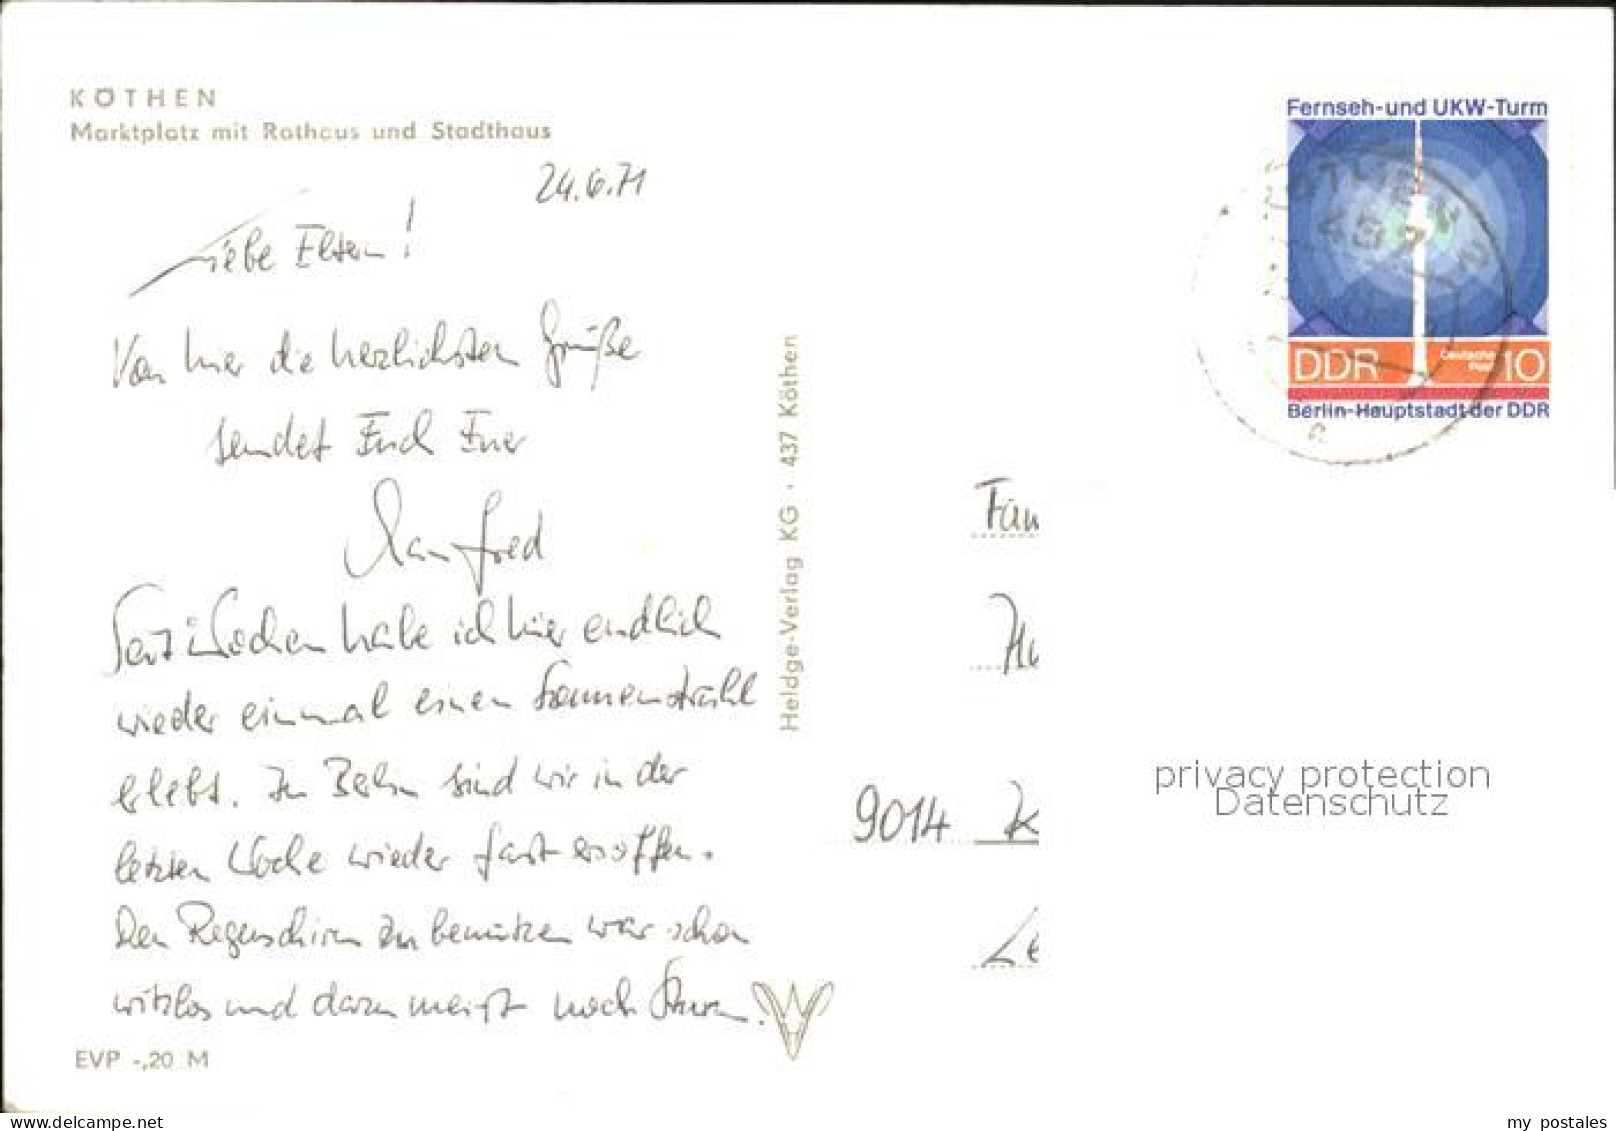 KÖTHEN
Marktplatz mit Rathaus und Stadthaus
24.6.71
Liebe Eltern!
Von hier die herzlichsten Grüße
sendet Euch Euer
Manfred
Seit Wochen habe ich hier endlich
wieder einmal einen Sonnenstrahl
erlebt. In Berlin sind wir in der
letzten Woche wieder fast ersoffen.
Den Regenschirm zu benutzen war schon
witzlos und dazu meist noch Sturm.
EVP -,20 M
Heldge-Verlag KG · 437 Köthen
Fernseh-und UKW-Turm
DDR
Deutsche Post
10
Berlin-Hauptstadt der DDR
KÖTHEN 2
437
Fam
9014 K
Le
privacy protection
Datenschutz
www.delcampe.net
my postales